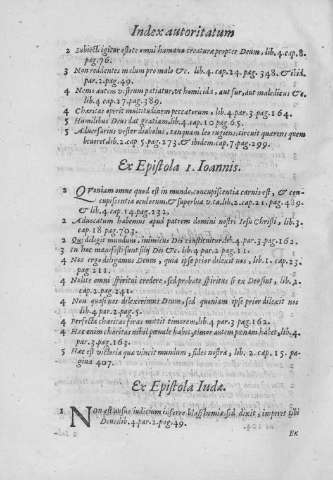 Index autoritatum
2 Subiecti igitur estote omni humanæ creaturæ propter Deum, lib. 4. cap. 8.
pag. 76.
3 Non reddentes malum pro malo &c. lib. 4. cap. 24. pag. 348. & ibid.
par. 2. pag. 49.
4 Nemo autem vestrum patiatur, ut homicida, aut fur, aut maledicus &c.
lib. 4. cap. 27. pag. 389.
4 Charitas operit multitudinem peccatorum, lib. 4. par. 3. pag. 164.
5 Humilibus Deus dat gratiam, lib. 4. cap. 10. pag. 65.
5 Adversarius vester diabolus, tanquam leo rugiens, circuit quærens quem
devoret. lib. 2. cap. 5. pag. 273. & ibidem. cap. 7. pag. 299.
Ex Epistola 1. Ioannis.
2 Quoniam omne quod est in mundo, concupiscentia carnis est, & con-
cupiscentia oculorum, & superbia vitæ, lib. 2. cap. 21. pag. 489.
& lib. 4. cap. 14. pag. 132.
2 Advocatum habemus apud patrem domini nostri Iesu Christi, lib. 3.
cap. 18. pag. 703.
2 Qui deligit mundum, inimicus Dei constituitur. lib. 4. par. 3. pag. 162.
3 In hoc manifesti sunt filij Dei &c. lib. 4. par. 2. pag. 11.
4 Nos ergo deligamus Deum, quia ipse prior dilexit nos, lib. 1. cap. 23.
pag. 211.
4 Nolite omni spiritui credere, sed probate spiritus si ex Deo sint, lib. 2.
cap. 2. pag. 241.
4 Non quasi nos dilexerimus Deum, sed quoniam ipse prior dilexit nos
lib. 4. par. 2. pag. 5.
4 Perfecta charitas foras mittit timorem, lib. 4. par. 3. pag. 162.
4 Hæc enim charitas nihil pœnale habet, timor autem pœnam habet, lib. 4.
par. 3. pag. 163.
5 Hæc est victoria quæ vincit mundum, fides nostra, lib. 2. cap. 15. pa-
gina 407.
Ex Epistola Iudæ.
1 Non est ausus iudicium inferre blasfemiæ sed dixit, imperet tibi
Deus lib. 4. par. 2. pag. 49.
Ex